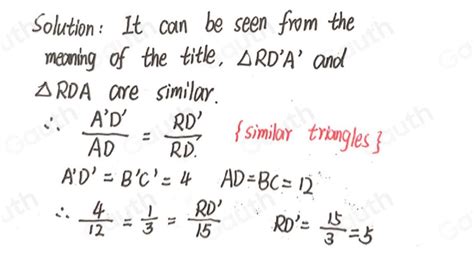 Solution: It can be seen from the
meaning of the title, △RD'A' and
△RDA are similar.
∴ A'D'/AD = RD'/RD. {similar triangles}
A'D' = B'C' = 4 AD=BC= 12
∴ 4/12 = 1/3 = RD'/15 RD'= 15/3 =5